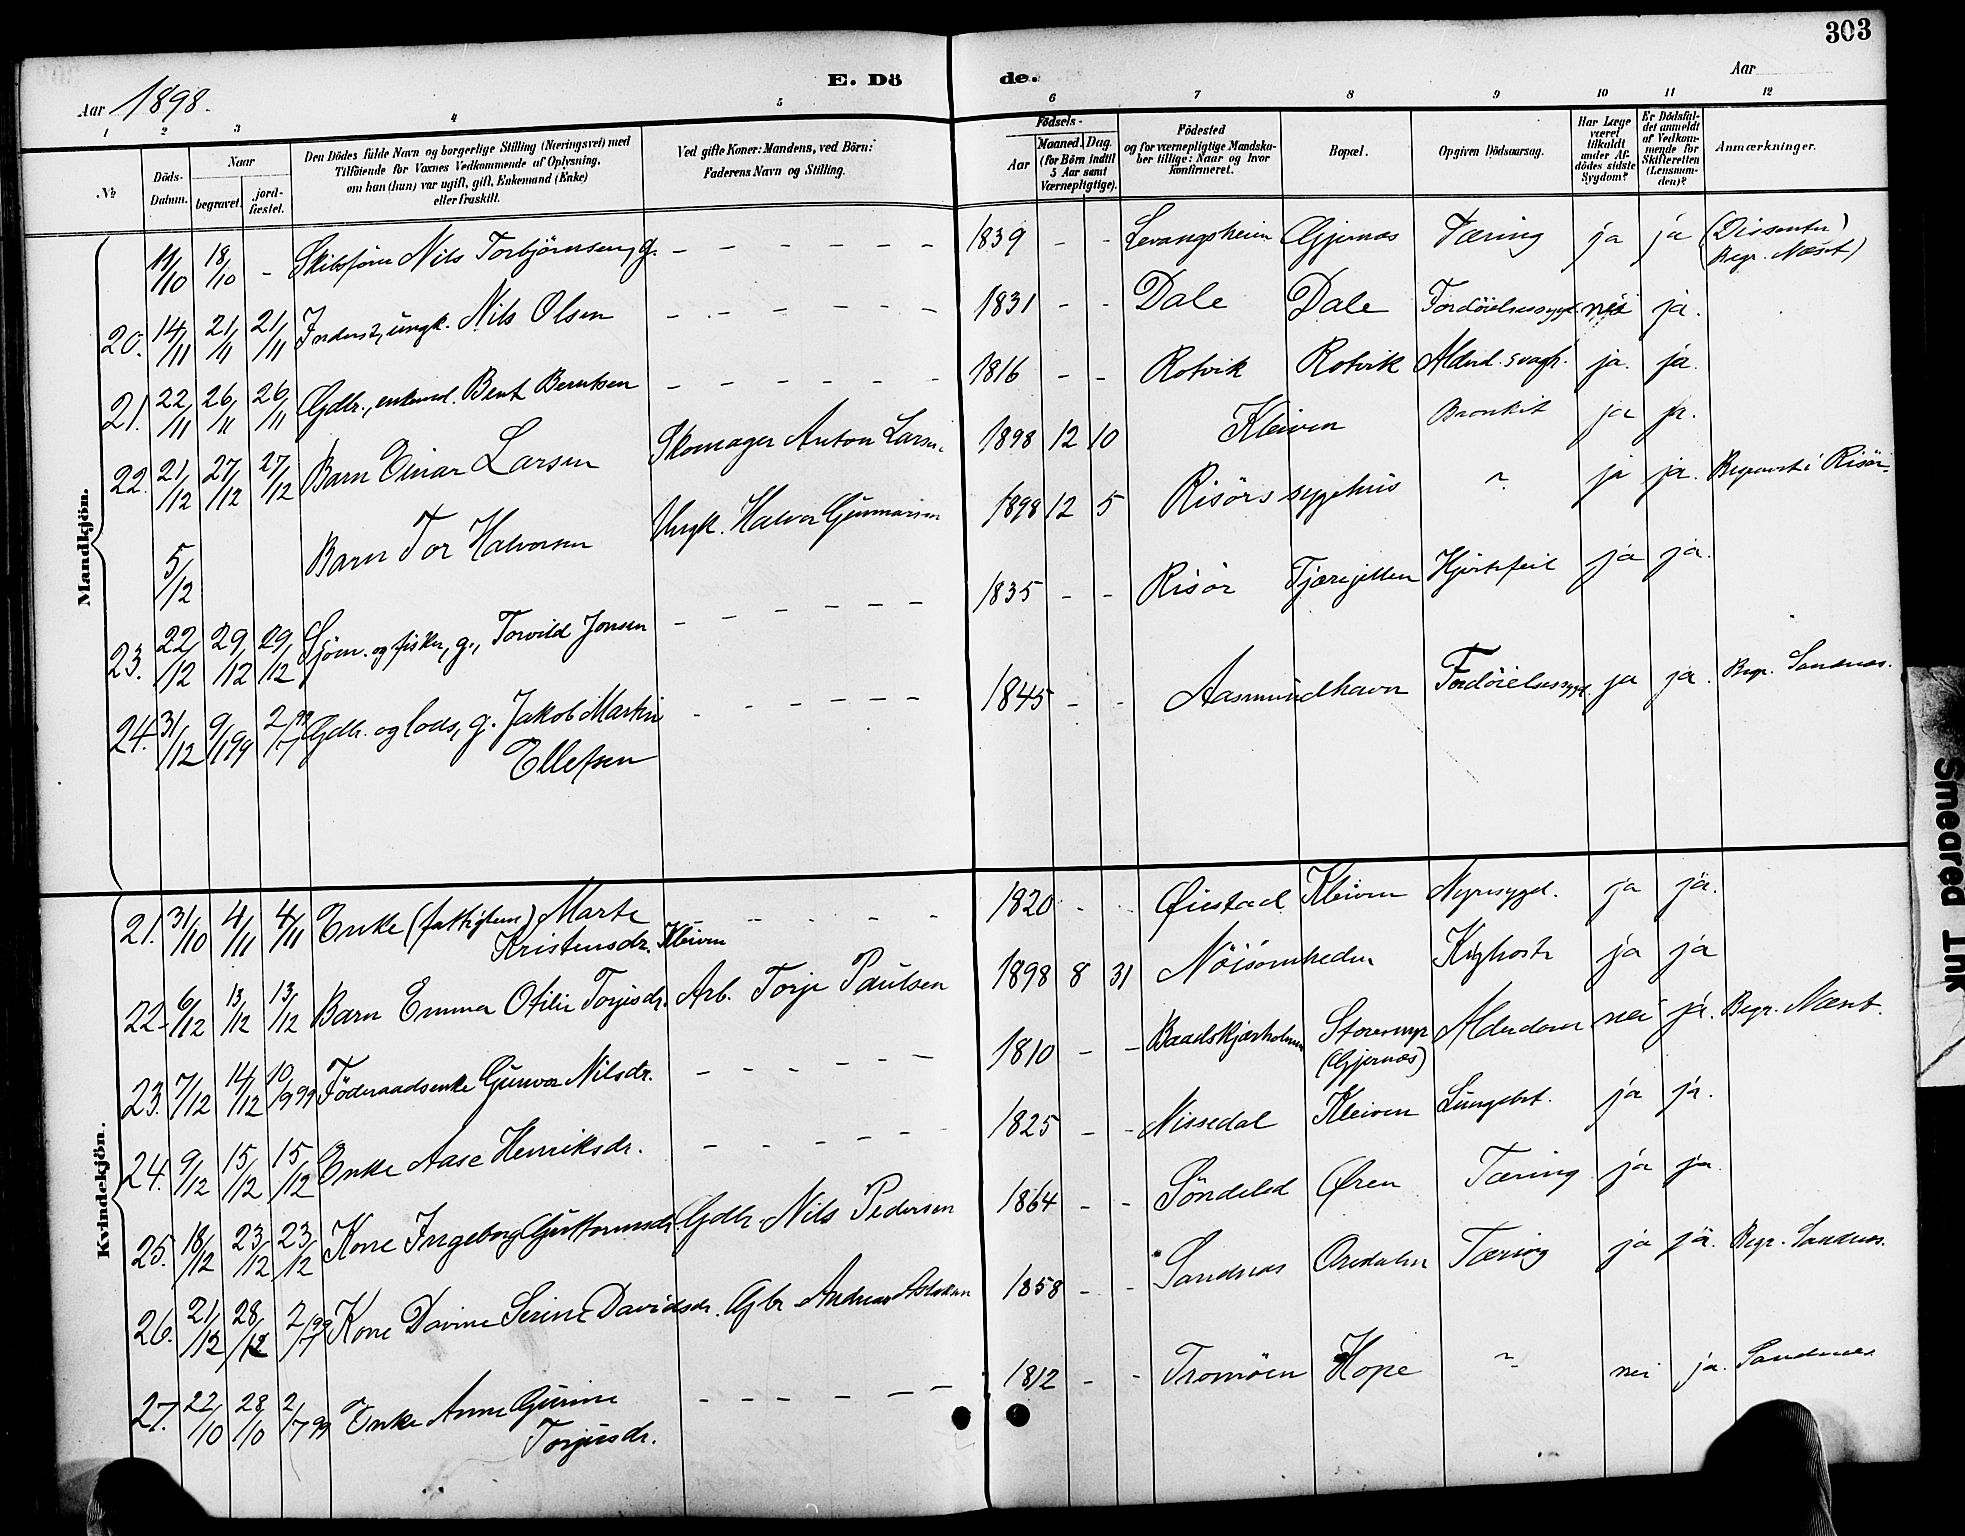 303
E. Döde.
Aar 1898.
Aar
1 2 3 4 5 6 7 8 9 10 11 12
№
Döds-Datum.
Naar begravet. jordfæstet.
Den Dödes fulde Navn og borgerlige Stilling (Næringsvei) med Tilföiende for Voxnes Vedkommende af Oplysning, om han (hun) var ugift, gift, Enkemand (Enke) eller fraskilt.
Ved gifte Koner: Mandens, ved Börn: Faderens Navn og Stilling.
Födsels- Aar Maaned. Dag. (for Börn indtil 5 Aar samt Værnepligtige).
Födested og for værnepligtige Mandskaber tillige: Naar og hvor konfirmeret.
Bopæl.
Opgiven Dödsaarsag.
Har Læge været tilkaldt under Afdödes sidste Sygdom?
Er Dödsfaldet anmeldt af Vedkommende for Skifteretten (Lensmanden)?
Anmærkninger.
Mandkjön.
11/10 18/10 - Skibsförer Nils Torbjörnsen, g. - - - - - - 1839 - - Levangsheien Gjernæs Tæring ja ja (Dissenter) Begr. Næset)
20. 14/11 21/11 21/11 Inderst, ungk. Nils Olsen - - - - - - 1831 - - Dale Dale Fordöielsessygd. nei ja.
21. 22/11 26/11 26/11 Gdbr., enkemd. Bent Berntsen - - - - - - 1816 - - Rotvik Rotvik Alderd. svagh. ja. ja.
22. 21/12 27/12 27/12 Barn Einar Larsen Skomager Anton Larsen 1898 12 10 Kleiven Bronkit ja ja.
5/12 Barn Tor Halvorsen Ungk. Halvor Gunnarsen 1898 12 5 Risörs sygehus ~ ja ja. Begravet i Risör.
23. 22/12 29/12 29/12 Sjöm. og fisker, g., Torvild Jonsen - - - - - 1835 - - Risör Tjæregjetten Hjertefeil ja ja.
24. 31/12 9/1 99 2/7 99 Gdbr. og lods, g. Jakob Martin Ellefsen - - - - - - 1845 - - Aasmundhavn Fordöielsessygd. ja ja. Begr. Sandnæs.
Kvindekjön.
21. 31/10 4/11 4/11 Enke (fattiglem) Marte Kristensdr. Kleiven - - - - - 1820 - - Øiestad Kleiven Nyresygd. ja ja.
22. 6/12 13/12 13/12 Barn Emma Otilie Torjesdr. Arb. Torje Paulsen 1898 8 31 Nöisomheden Kighoste ja ja
23. 7/12 14/12 10/9 99 Föderaadsenke Gunvor Nilsdr. - - - - - - 1810 - - Baadskjærholmen Storemyr (Gjernæs) Alderdom nei ja. Begr. Næset.
24. 9/12 15/12 15/12 Enke Aase Henriksdr. - - - - - - 1825 - - Nissedal Kleiven Lungebet. ja ja.
25. 18/12 23/12 23/12 Kone Ingeborg Guttormsdr. Gdbr. Nils Pedersen 1864 - - Söndeled Øren Tæring ja ja
26. 21/12 28/12 2/7 99 Kone Davine Serine Davidsdr. Gbr. Andreas Aslaksen 1858 - - Sandnæs Oredalen Tæring ja ja. Begr. Sandnæs.
27. 22/10 28/10 2/7 99 Enke Anne Gurine Torjusdr. - - - - - - 1812 - - Tromöen Hope ~ nei ja. Sandnæs
Smeared Ink